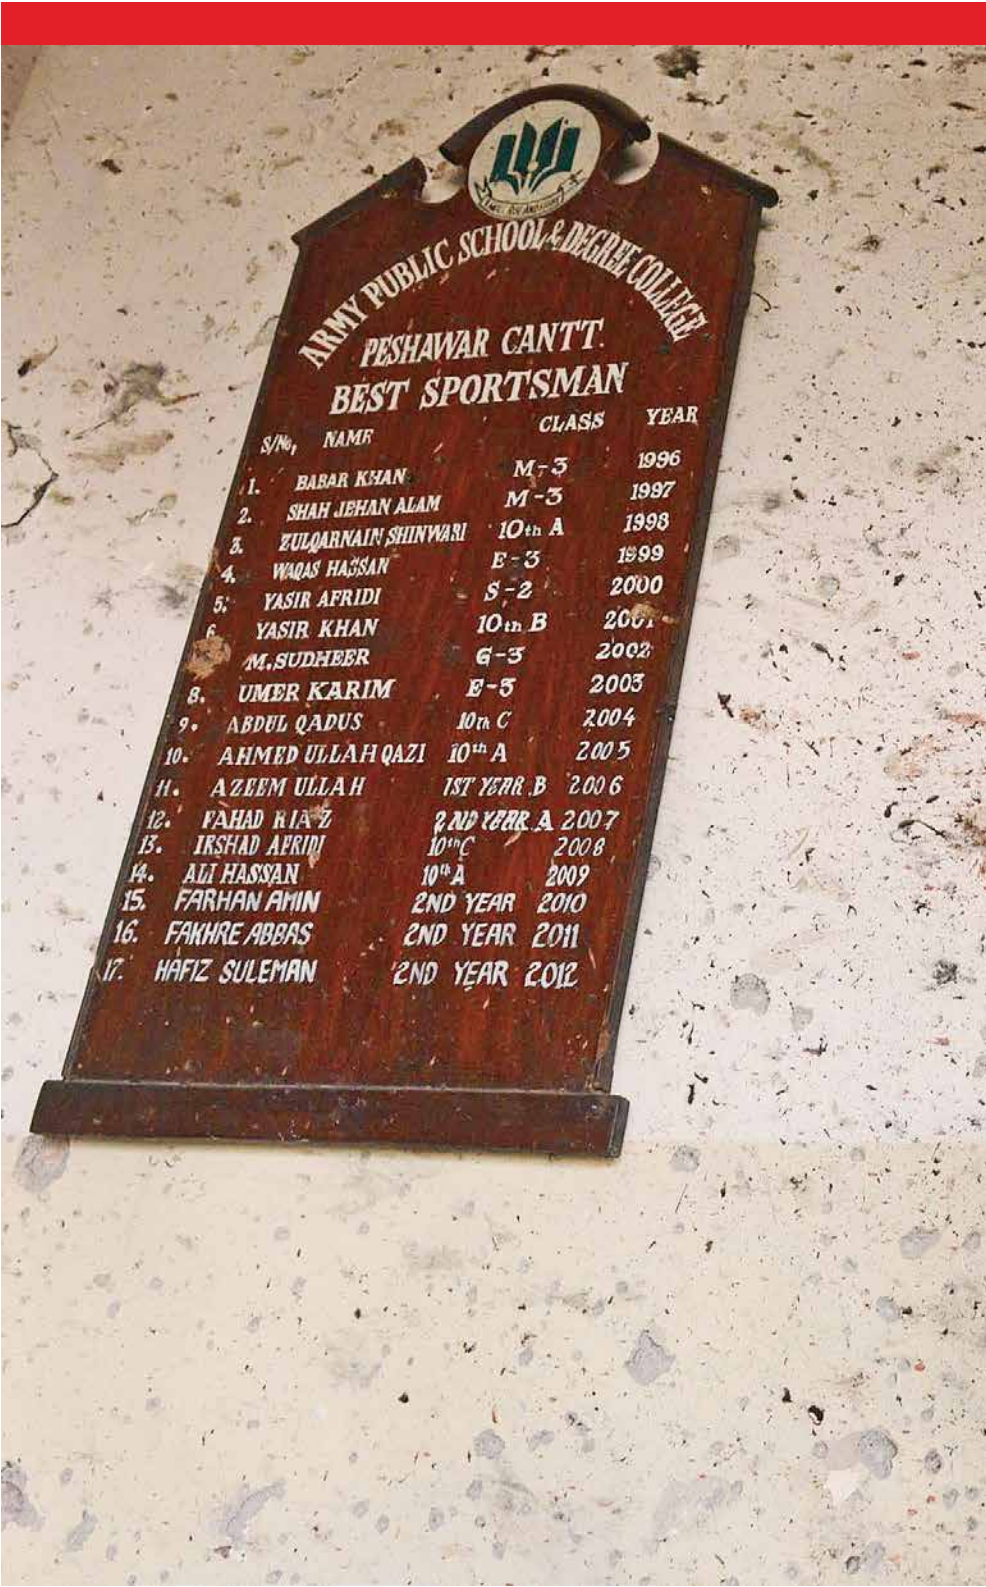 ARMY PUBLIC SCHOOL & DEGREE COLLEGE
PESHAWAR CANTT.
BEST SPORTSMAN
S/No, NAME CLASS YEAR
1. BABAR KHAN M-3 1996
2. SHAH JEHAN ALAM M-3 1997
3. ZULQARNAIN SHINWARI 10th A 1998
4. WAQAS HASSAN E-3 1999
5. YASIR AFRIDI S-2 2000
6 YASIR KHAN 10th B 2001
M. SUDHEER G-3 2002
8. UMER KARIM E-3 2003
9. ABDUL QADUS 10th C 2004
10. AHMED ULLAH QAZI 10th A 2005
11. AZEEM ULLAH 1ST YEAR B 2006
12. FAHAD RIAZ 2ND YEAR A 2007
13. IRSHAD AFRIDI 10th C 2008
14. ALI HASSAN 10th A 2009
15. FARHAN AMIN 2ND YEAR 2010
16. FAKHRE ABBAS 2ND YEAR 2011
17. HAFIZ SULEMAN 2ND YEAR 2012